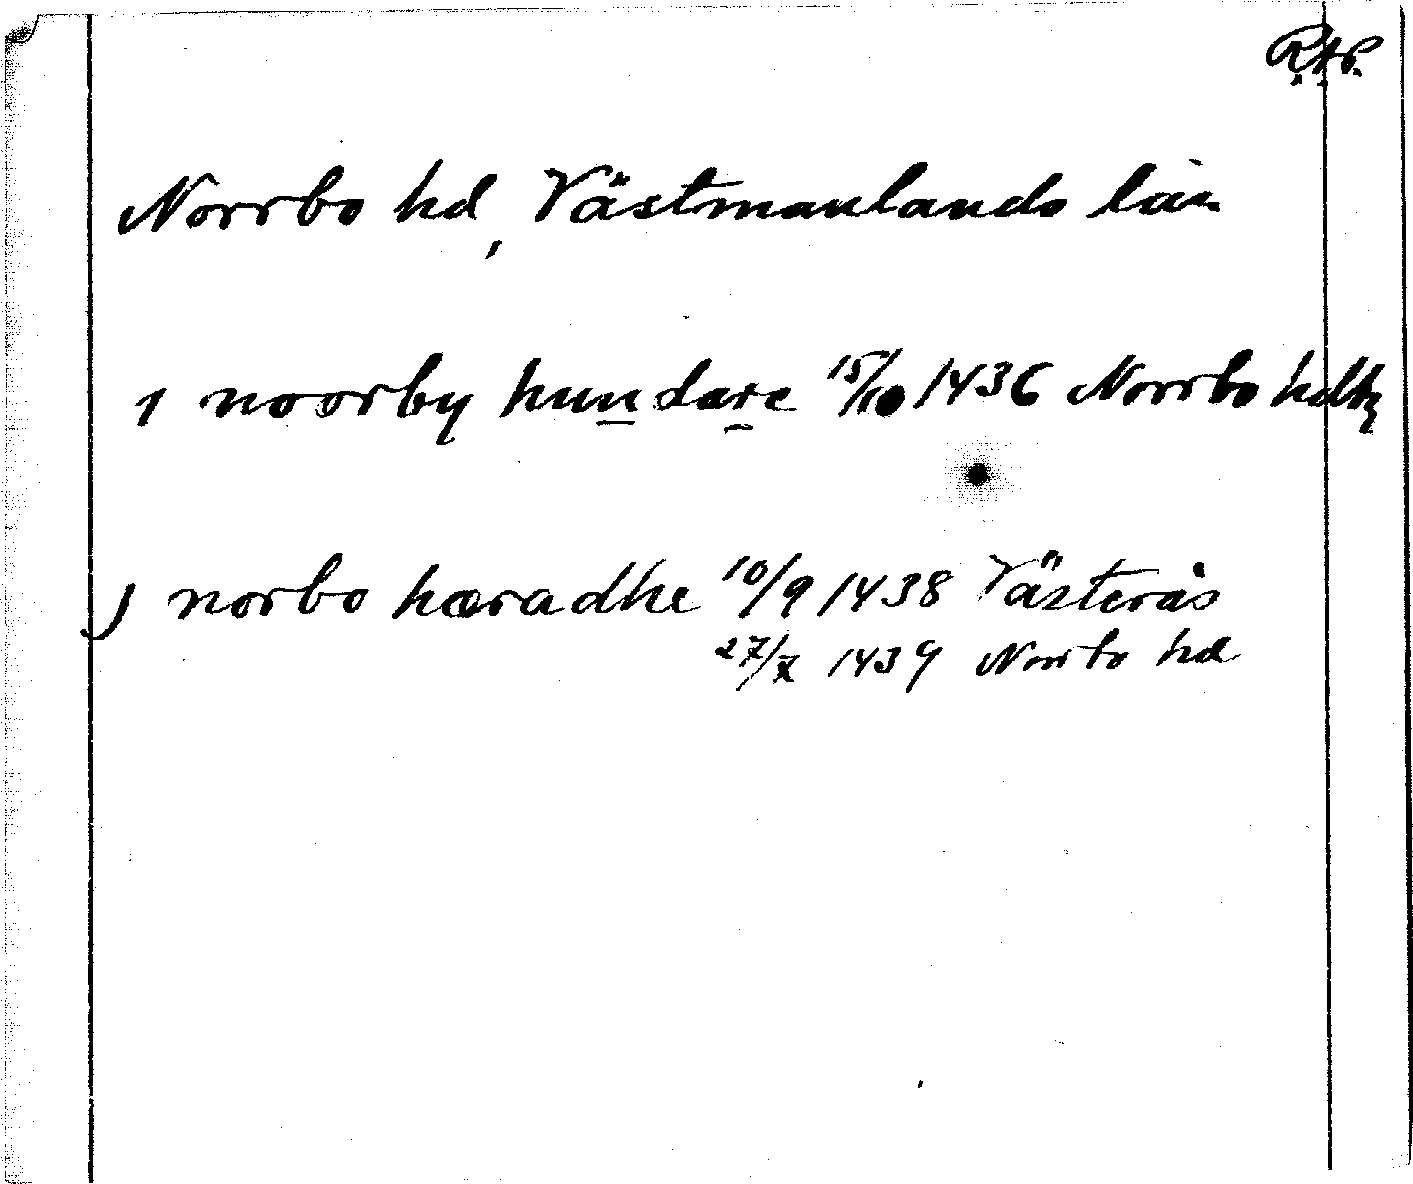 RAP.
Norrbo hd, Västmanlands län
i noorby hundare 15/10 1436 Norrbo hdtg
j norbo hæradhe 10/9 1438 Västerås
27/X 1439 Norrbo hd